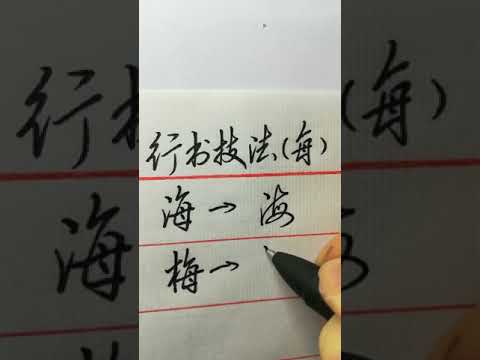 行书技法(每)
海→海
梅→